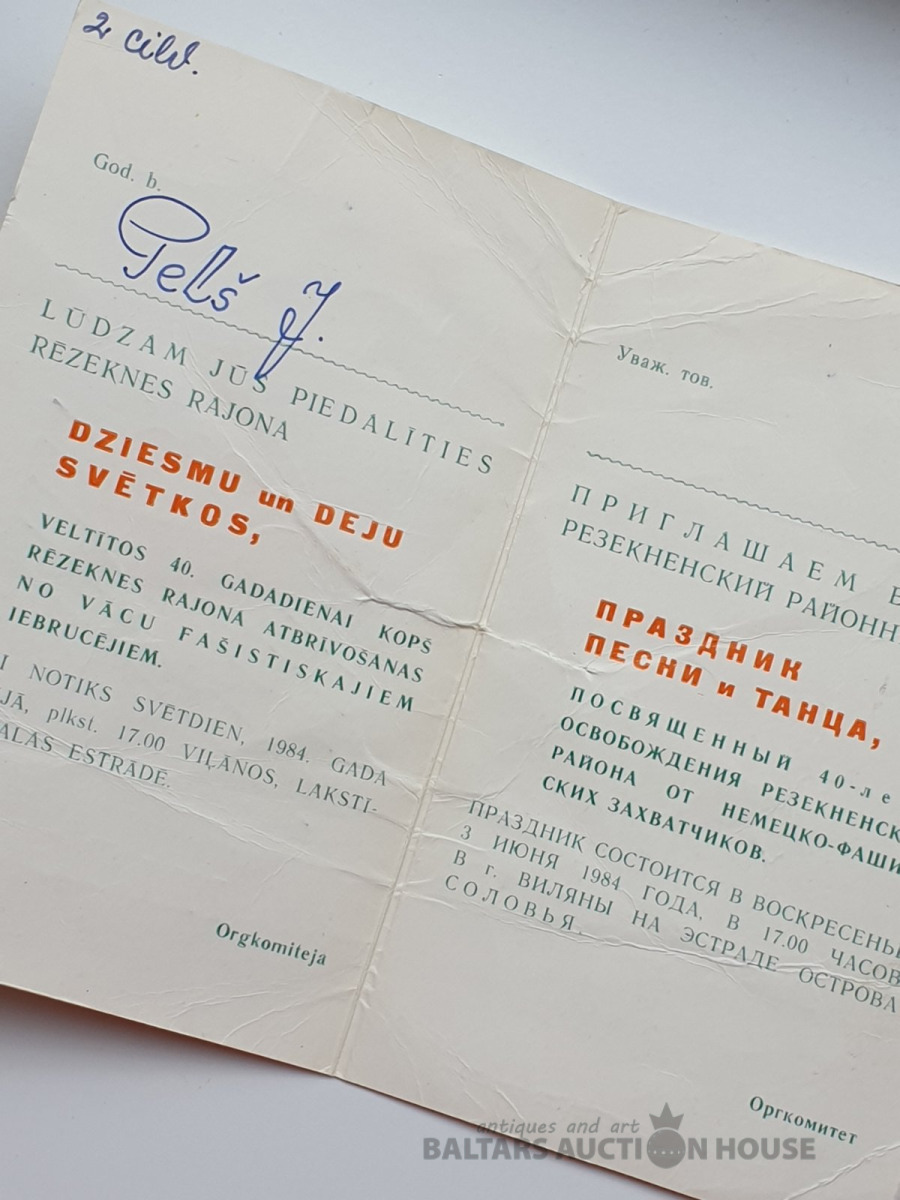 2 cilv.
God. b.
Pelš J.
LŪDZAM JŪS PIEDALĪTIES
RĒZEKNES RAJONA
DZIESMU un DEJU
SVĒTKOS,
VELTĪTOS 40. GADADIENAI KOPŠ
RĒZEKNES RAJONA ATBRĪVOŠANAS
NO VĀCU FAŠISTISKAJIEM
IEBRUCĒJIEM.
I NOTIKS SVĒTDIEN, 1984. GADA
JĀ, plkst. 17.00 VIĻĀNOS, LAKSTĪ-
ALAS ESTRĀDĒ.
Orgkomiteja
Уваж. тов.
ПРИГЛАШАЕМ В
РЕЗЕКНЕНСКИЙ РАЙОНН
ПРАЗДНИК
ПЕСНИ и ТАНЦА,
ПОСВЯЩЕННЫЙ 40-ле
ОСВОБОЖДЕНИЯ РЕЗЕКНЕНСК
РАЙОНА ОТ НЕМЕЦКО-ФАШИ
СКИХ ЗАХВАТЧИКОВ.
ПРАЗДНИК СОСТОИТСЯ В ВОСКРЕСЕНЬЕ
3 ИЮНЯ 1984 ГОДА, В 17.00 ЧАСОВ
В г. ВИЛЯНЫ НА ЭСТРАДЕ ОСТРОВА
СОЛОВЬЯ.
Оргкомитет
antiques and art
BALTARS AUCTION HOUSE